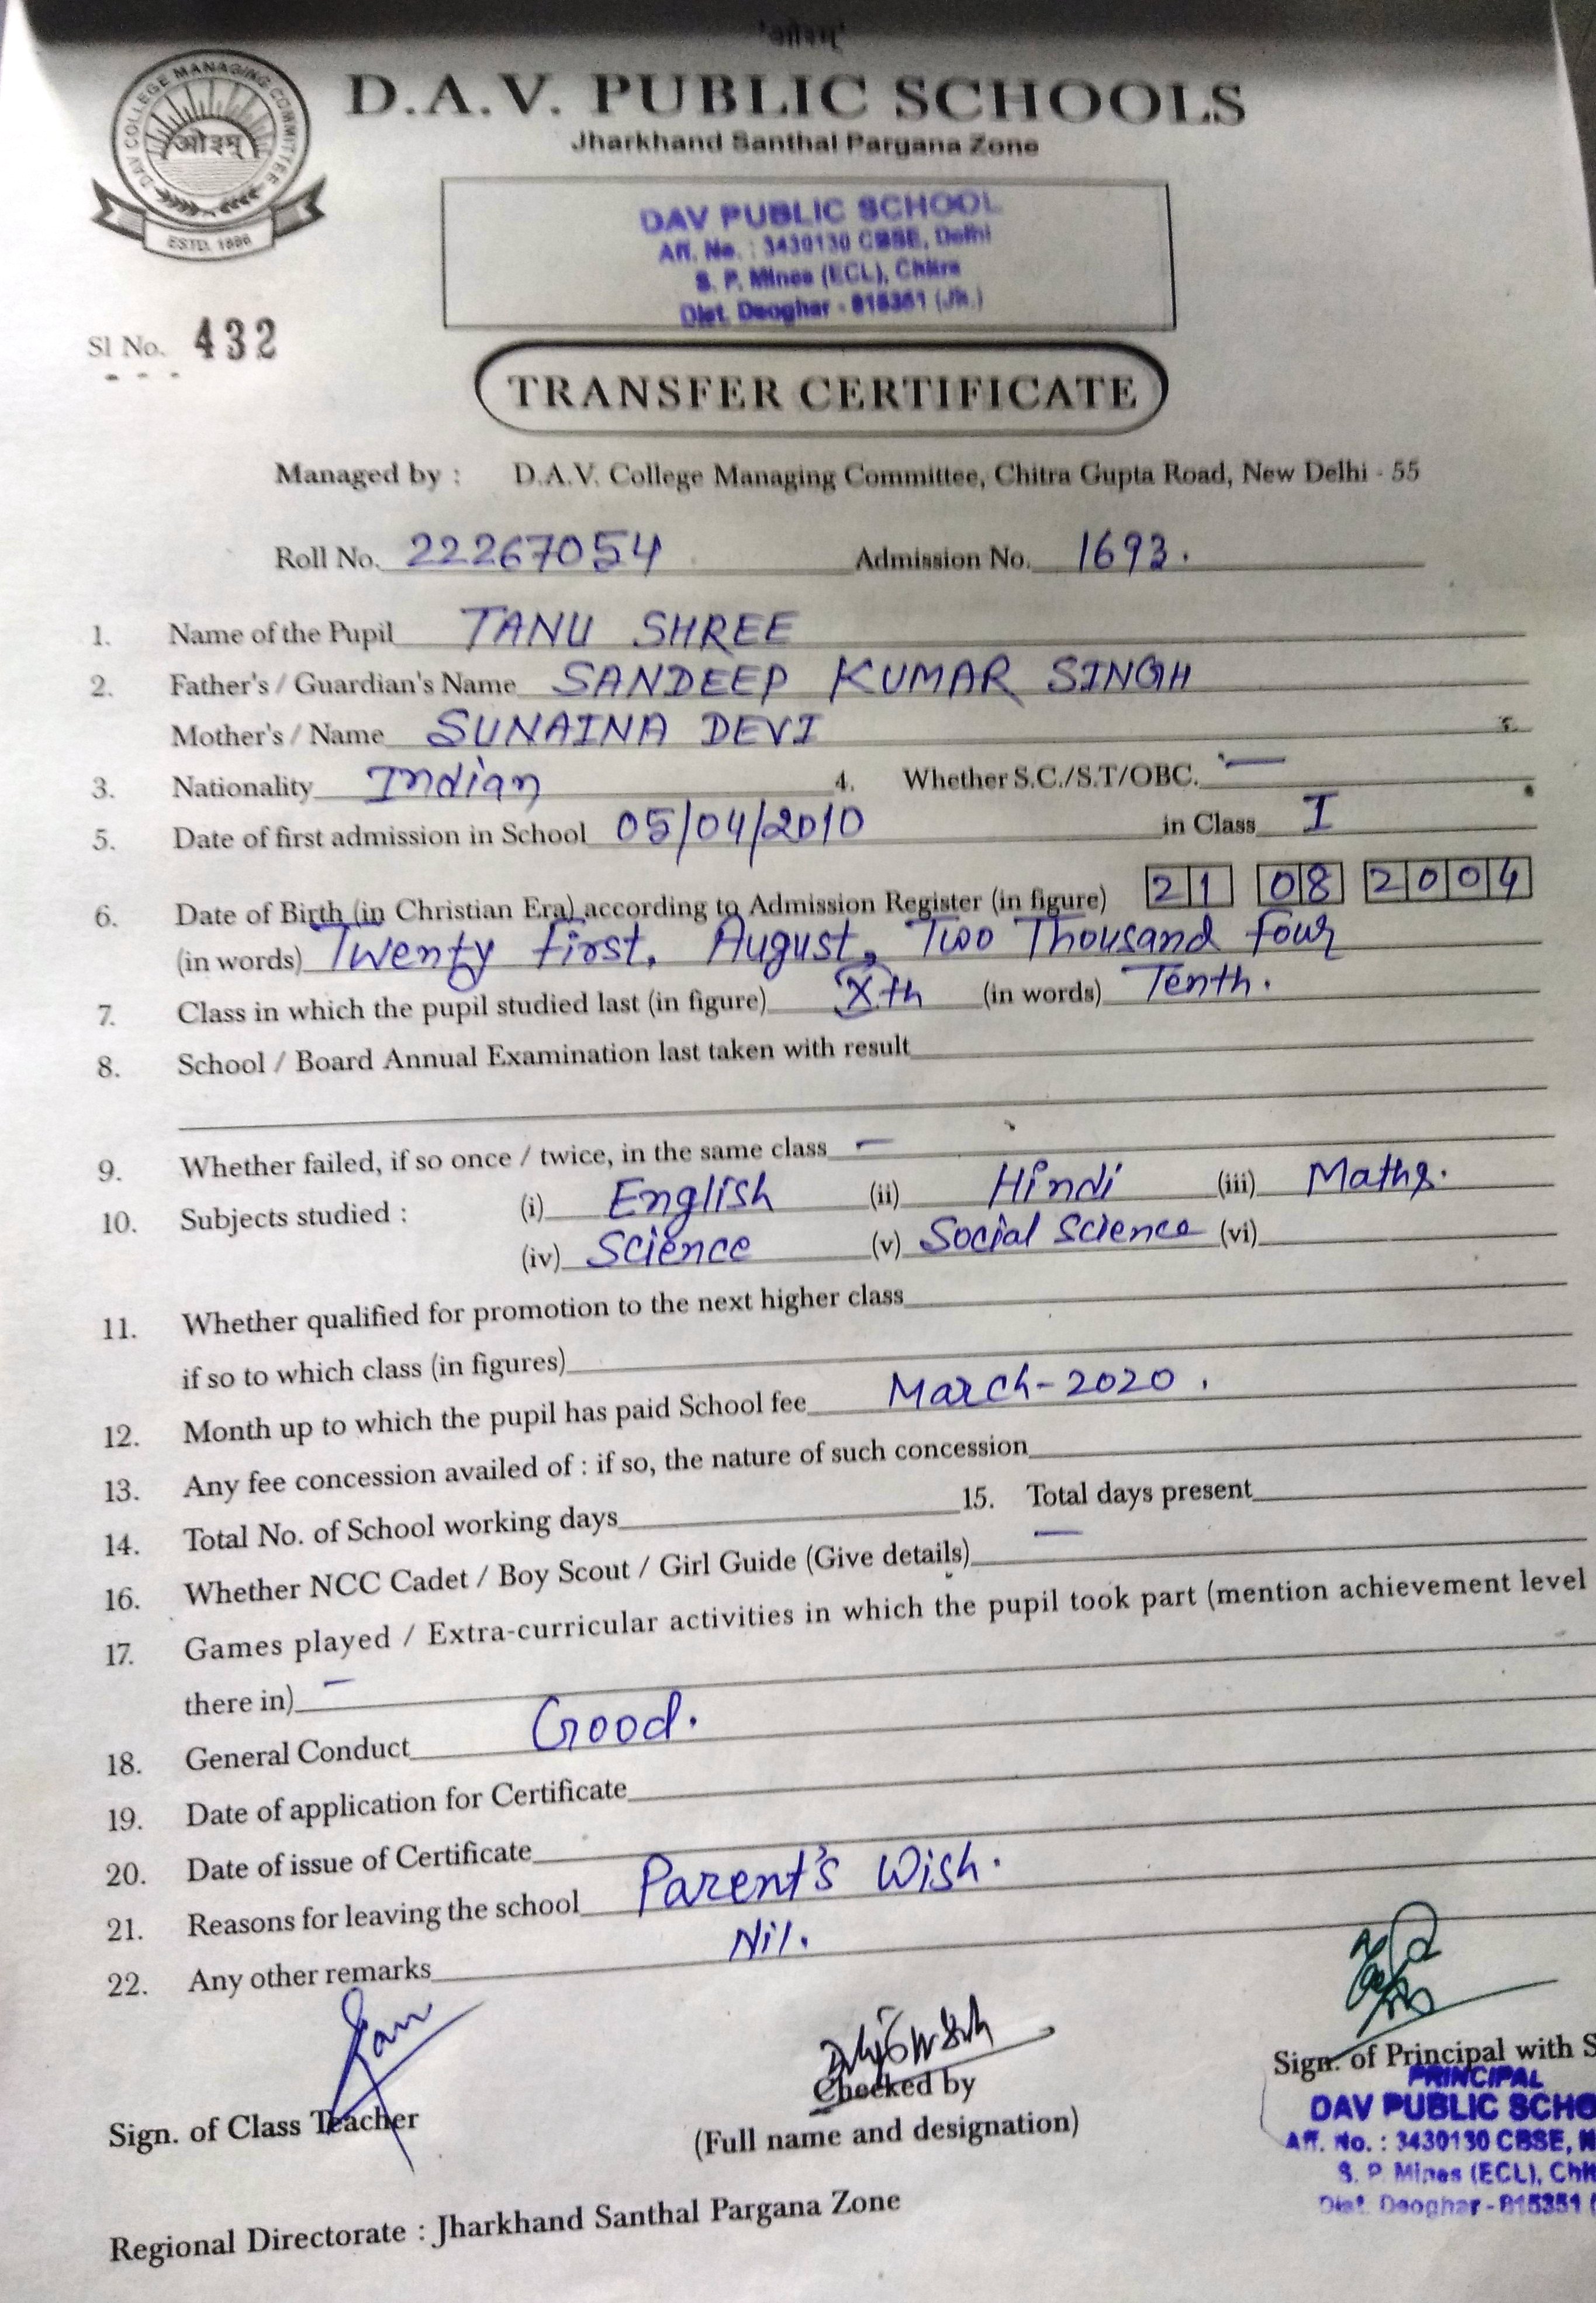 'ओ३म्'
DAV COLLEGE MANAGING COMMITTEE
ओ३म्
ESTD. 1886
D.A.V. PUBLIC SCHOOLS
Jharkhand Santhal Pargana Zone
DAV PUBLIC SCHOOL
Aff. No. : 3430130 CBSE, Delhi
S. P. Mines (ECL), Chitra
Dist. Deoghar - 815351 (Jh.)
Sl No. 432
TRANSFER CERTIFICATE
Managed by : D.A.V. College Managing Committee, Chitra Gupta Road, New Delhi - 55
Roll No. 22267054 Admission No. 1693.
1. Name of the Pupil TANU SHREE
2. Father's / Guardian's Name SANDEEP KUMAR SINGH
Mother's / Name SUNAINA DEVI
3. Nationality Indian 4. Whether S.C./S.T/OBC. —
5. Date of first admission in School 05/04/2010 in Class I
6. Date of Birth (in Christian Era) according to Admission Register (in figure) 21 08 2004
(in words) Twenty first, August, Two Thousand four
7. Class in which the pupil studied last (in figure) Xth (in words) Tenth.
8. School / Board Annual Examination last taken with result
9. Whether failed, if so once / twice, in the same class —
10. Subjects studied : (i) English (ii) Hindi (iii) Maths.
(iv) Science (v) Social Science (vi)
11. Whether qualified for promotion to the next higher class
if so to which class (in figures)
12. Month up to which the pupil has paid School fee March-2020.
13. Any fee concession availed of : if so, the nature of such concession
14. Total No. of School working days 15. Total days present
16. Whether NCC Cadet / Boy Scout / Girl Guide (Give details) —
17. Games played / Extra-curricular activities in which the pupil took part (mention achievement level
there in) —
18. General Conduct Good.
19. Date of application for Certificate
20. Date of issue of Certificate
21. Reasons for leaving the school Parent's Wish.
22. Any other remarks Nil.
Sign. of Class Teacher
Checked by
(Full name and designation)
Sign. of Principal with S
PRINCIPAL
DAV PUBLIC SCHO
Aff. No. : 3430130 CBSE, N
S. P. Mines (ECL), Chit
Dist. Deoghar - 815351 (
Regional Directorate : Jharkhand Santhal Pargana Zone